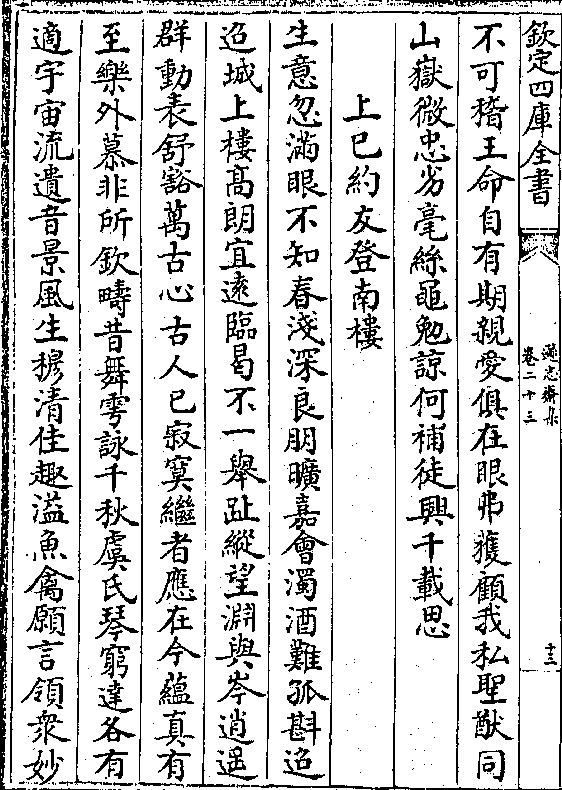 欽定四庫全書
遜志齋集
卷二十三
十三
不可稽王命自有期親愛俱在眼弗獲顧我私聖猷同
山嶽微忠劣毫絲黽勉諒何補徒興千載思
上巳約友登南樓
生意忽滿眼不知春淺深良朋曠嘉會濁酒難孤斟迢
迢城上樓髙朗宜遠臨曷不一舉趾縱望淵與岑逍遥
群動表舒豁萬古心古人已寂寞繼者應在今藴真有
至樂外慕非所欽疇昔舞雩詠千秋虞氏琴窮達各有
適宇宙流遺音景風生穆清佳趣溢魚禽願言領衆妙